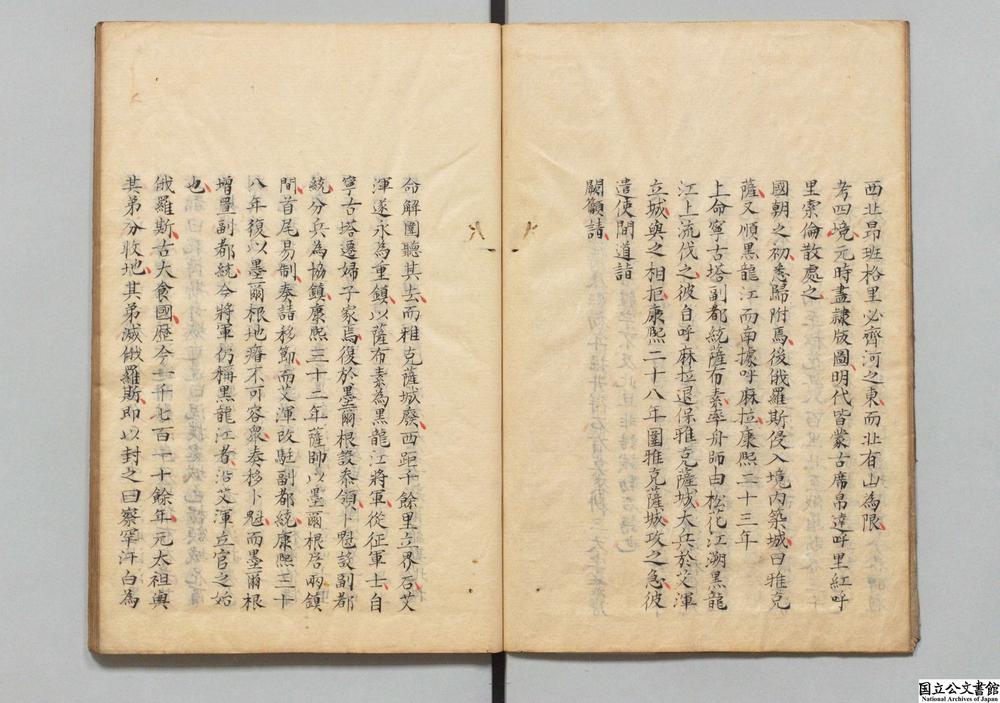 西北昂班格里必齊河之東而北有山為限
考四境元時盡隸版圖明代皆蒙古席帛達呼里紅呼
里索倫散處之
國朝之初悉歸附焉後俄羅斯侵入境內築城曰雅克
薩又順黑龍江而南據呼麻拉康熙二十三年
上命寧古塔副都統薩布素率舟師由松花江溯黑龍
江上流伐之彼自呼麻拉退保雅克薩城大兵於艾渾
立城與之相拒康熙二十八年圍雅克薩城攻之急彼
遣使間道詣
闕籲請
命解圍聽其去而雅克薩城廢西距千餘里立界石艾
渾遂永為重鎮以薩布素為黑龍江將軍從征軍士自
寧古塔遷婦子家焉復於墨爾根設泰領卜魁設副都
統分兵為協鎮康熙三十二年薩帥以墨爾根居兩鎮
間首尾易制奏請移節而艾渾改駐副都統康熙三十
八年復以墨爾根地瘠不可容衆奏移卜魁而墨爾根
增置副都統今將軍仍稱黑龍江者沿艾渾立官之始
也
俄羅斯古大食國歷今七千七百一十餘年元太祖與
其弟分收地其弟滅俄羅斯即以封之曰察罕汗白為
国立公文書館
National Archives of Japan